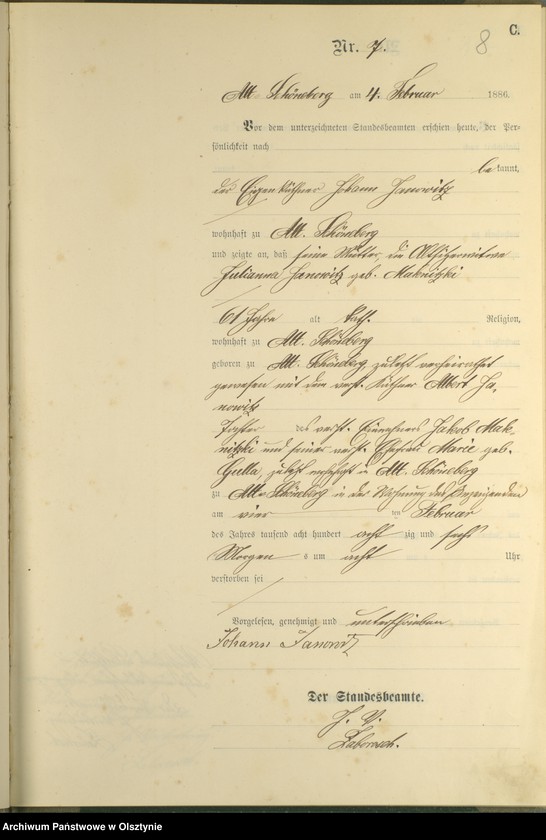 8
C.
Nr. 7.
Alt-Schöneberg am 4. Februar 1886.
Vor dem unterzeichneten Standesbeamten erschien heute, der Per-
sönlichkeit nach
be kannt,
der Eigenkäthner Johann Janowitz
wohnhaft zu Alt. Schöneberg
und zeigte an, daß seine Mutter, die Altsitzerwitwe
Julianna Janowitz geb. Maknitzki
61 Jahre alt kath. Religion,
wohnhaft zu Alt. Schöneberg
geboren zu Alt. Schöneberg, zuletzt verheirathet
gewesen mit dem verst. Käthner Albert Ja-
nowitz
Tochter des verst. Einwohners Jakob Mak-
nitzki und seiner verst. Ehefrau Marie geb.
Gulla, zuletzt wohnhaft in Alt. Schöneberg
zu Alt-Schöneberg in der Wohnung des Anzeigenden
am vier ten Februar
des Jahres tausend acht hundert acht zig und sechs
Morgen s um acht Uhr
verstorben sei
Vorgelesen, genehmigt und unterschrieben
Johann Janowitz
Der Standesbeamte.
J. V.
Archiwum Państwowe w Olsztynie